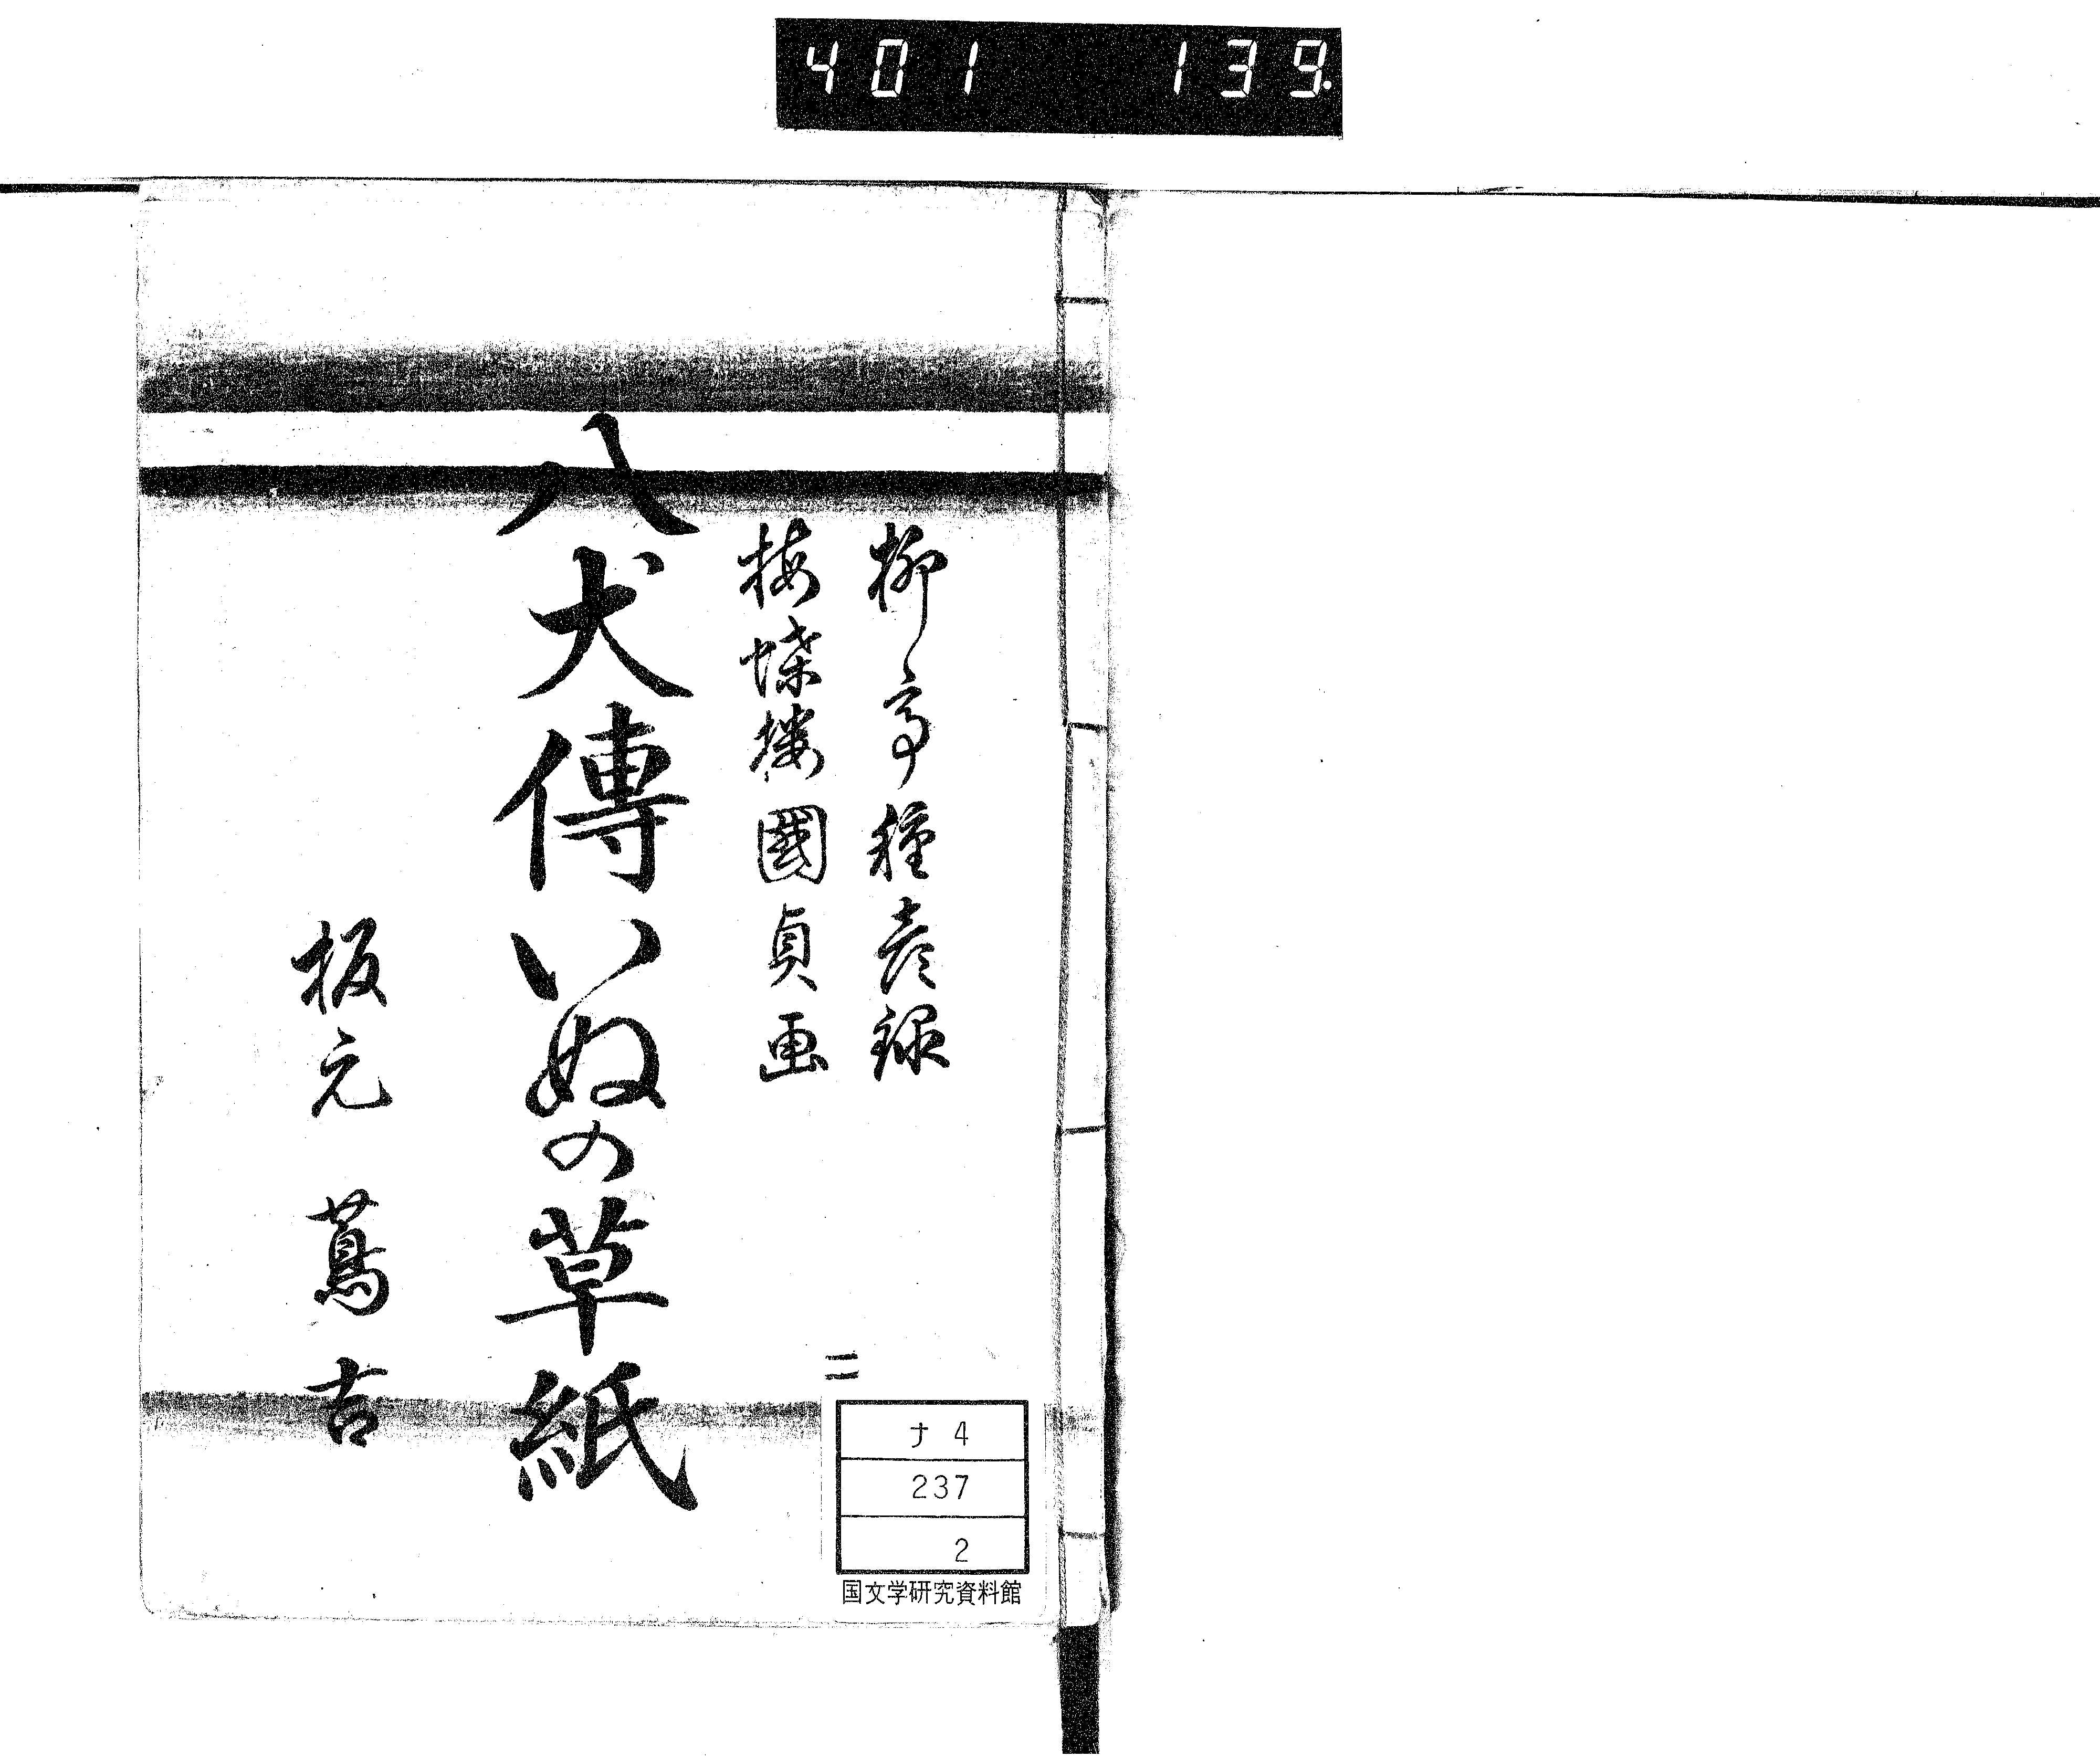 401 139.
柳亭種彦録
梅蝶楼國貞画
八犬傳いぬの草紙
板元 蔦吉
二
ナ 4
237
2
国文学研究資料館